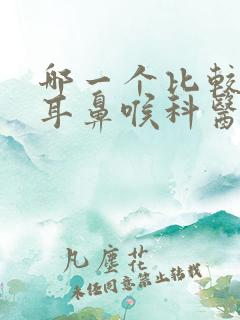 哪一个比較
耳鼻喉科醫
凡塵花
未经同意禁止转载